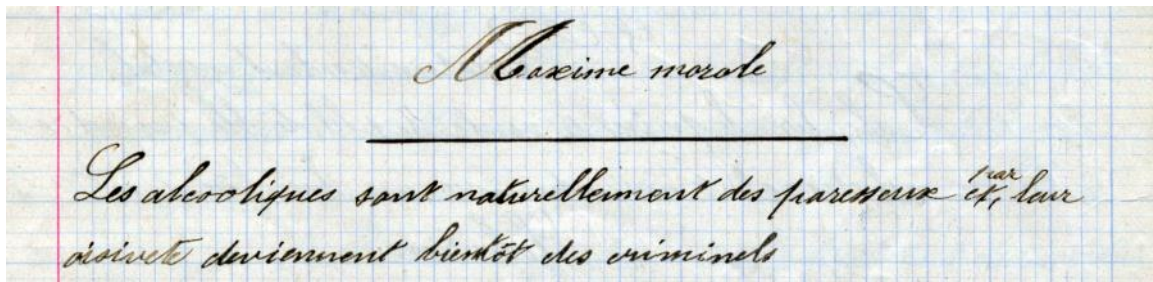 Maxime morale
Les alcooliques sont naturellement des paresseux et, par leur
oisiveté deviennent bientôt des criminels